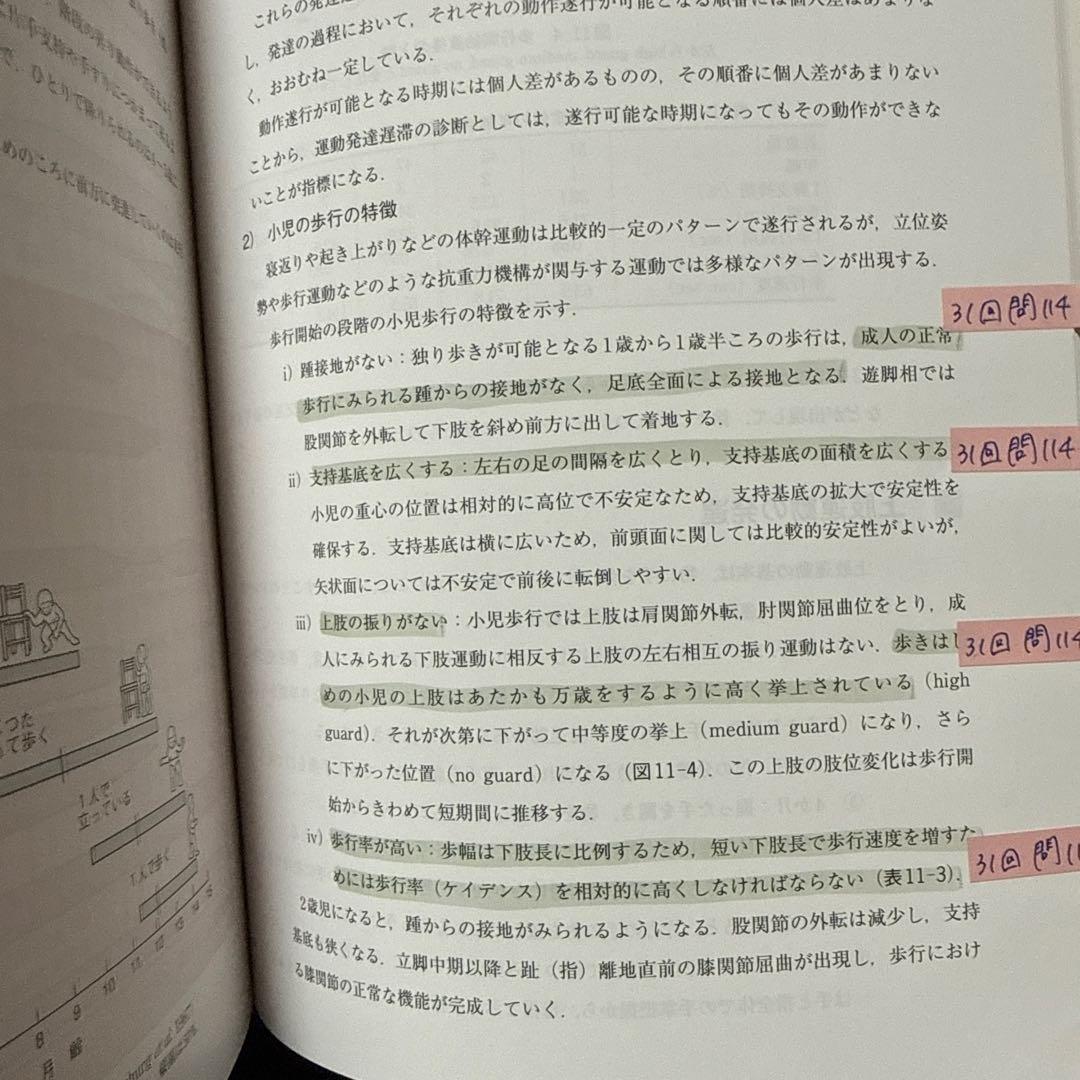 これらの発達
し，発達の過程において，それぞれの動作遂行が可能となる順番には個人差はあまりな
く，おおむね一定している．
動作遂行が可能となる時期には個人差があるものの，その順番に個人差があまりない
ことから，運動発達遅滞の診断としては，遂行可能な時期になってもその動作ができな
いことが指標になる．
2) 小児の歩行の特徴
寝返りや起き上がりなどの体幹運動は比較的一定のパターンで遂行されるが，立位姿
勢や歩行運動などのような抗重力機構が関与する運動では多様なパターンが出現する．
歩行開始の段階の小児歩行の特徴を示す．
31回 問114
i) 踵接地がない：独り歩きが可能となる1歳から1歳半ころの歩行は，成人の正常
歩行にみられる踵からの接地がなく，足底全面による接地となる．遊脚相では
股関節を外転して下肢を斜め前方に出して着地する．
ii) 支持基底を広くする：左右の足の間隔を広くとり，支持基底の面積を広くする
31回 問114
小児の重心の位置は相対的に高位で不安定なため，支持基底の拡大で安定性を
確保する．支持基底は横に広いため，前頭面に関しては比較的安定性がよいが，
矢状面については不安定で前後に転倒しやすい．
iii) 上肢の振りがない：小児歩行では上肢は肩関節外転，肘関節屈曲位をとり，成
人にみられる下肢運動に相反する上肢の左右相互の振り運動はない．歩きはじ
31回 問114
めの小児の上肢はあたかも万歳をするように高く挙上されている（high
guard）．それが次第に下がって中等度の挙上（medium guard）になり，さら
に下がった位置（no guard）になる（図11-4）．この上肢の肢位変化は歩行開
始からきわめて短期間に推移する．
iv) 歩行率が高い：歩幅は下肢長に比例するため，短い下肢長で歩行速度を増すた
めには歩行率（ケイデンス）を相対的に高くしなければならない（表11-3）．
31回 問11
2歳児になると，踵からの接地がみられるようになる．股関節の外転は減少し，支持
基底も狭くなる．立脚中期以降と趾（指）離地直前の膝関節屈曲が出現し，歩行におけ
る膝関節の正常な機能が完成していく．
めのころに前方に
つた
て歩く
1人で
立っている
1人で歩く
8 9 10 11 12 13 14 15
月 齢